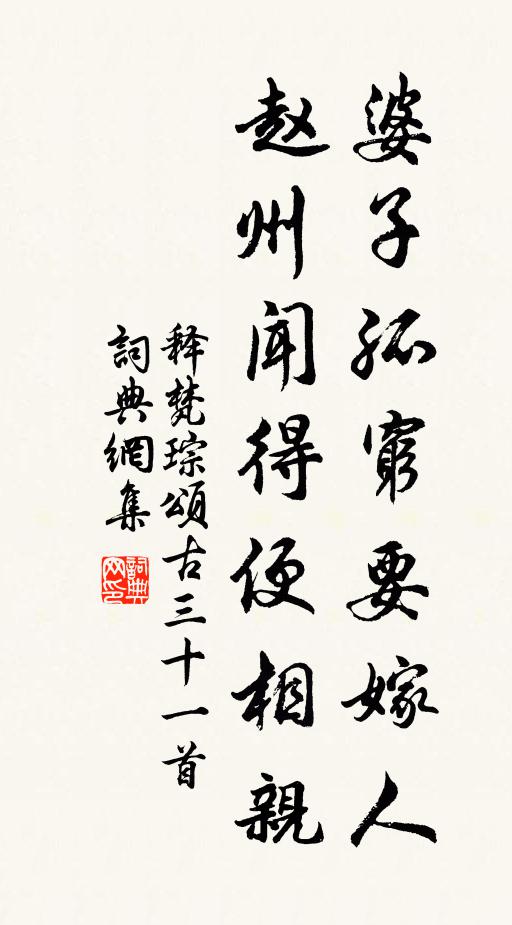 婆子孤窮要嫁人
赵州聞得便相親
释梵琮頌古三十一首
詞典網集
詞典网印